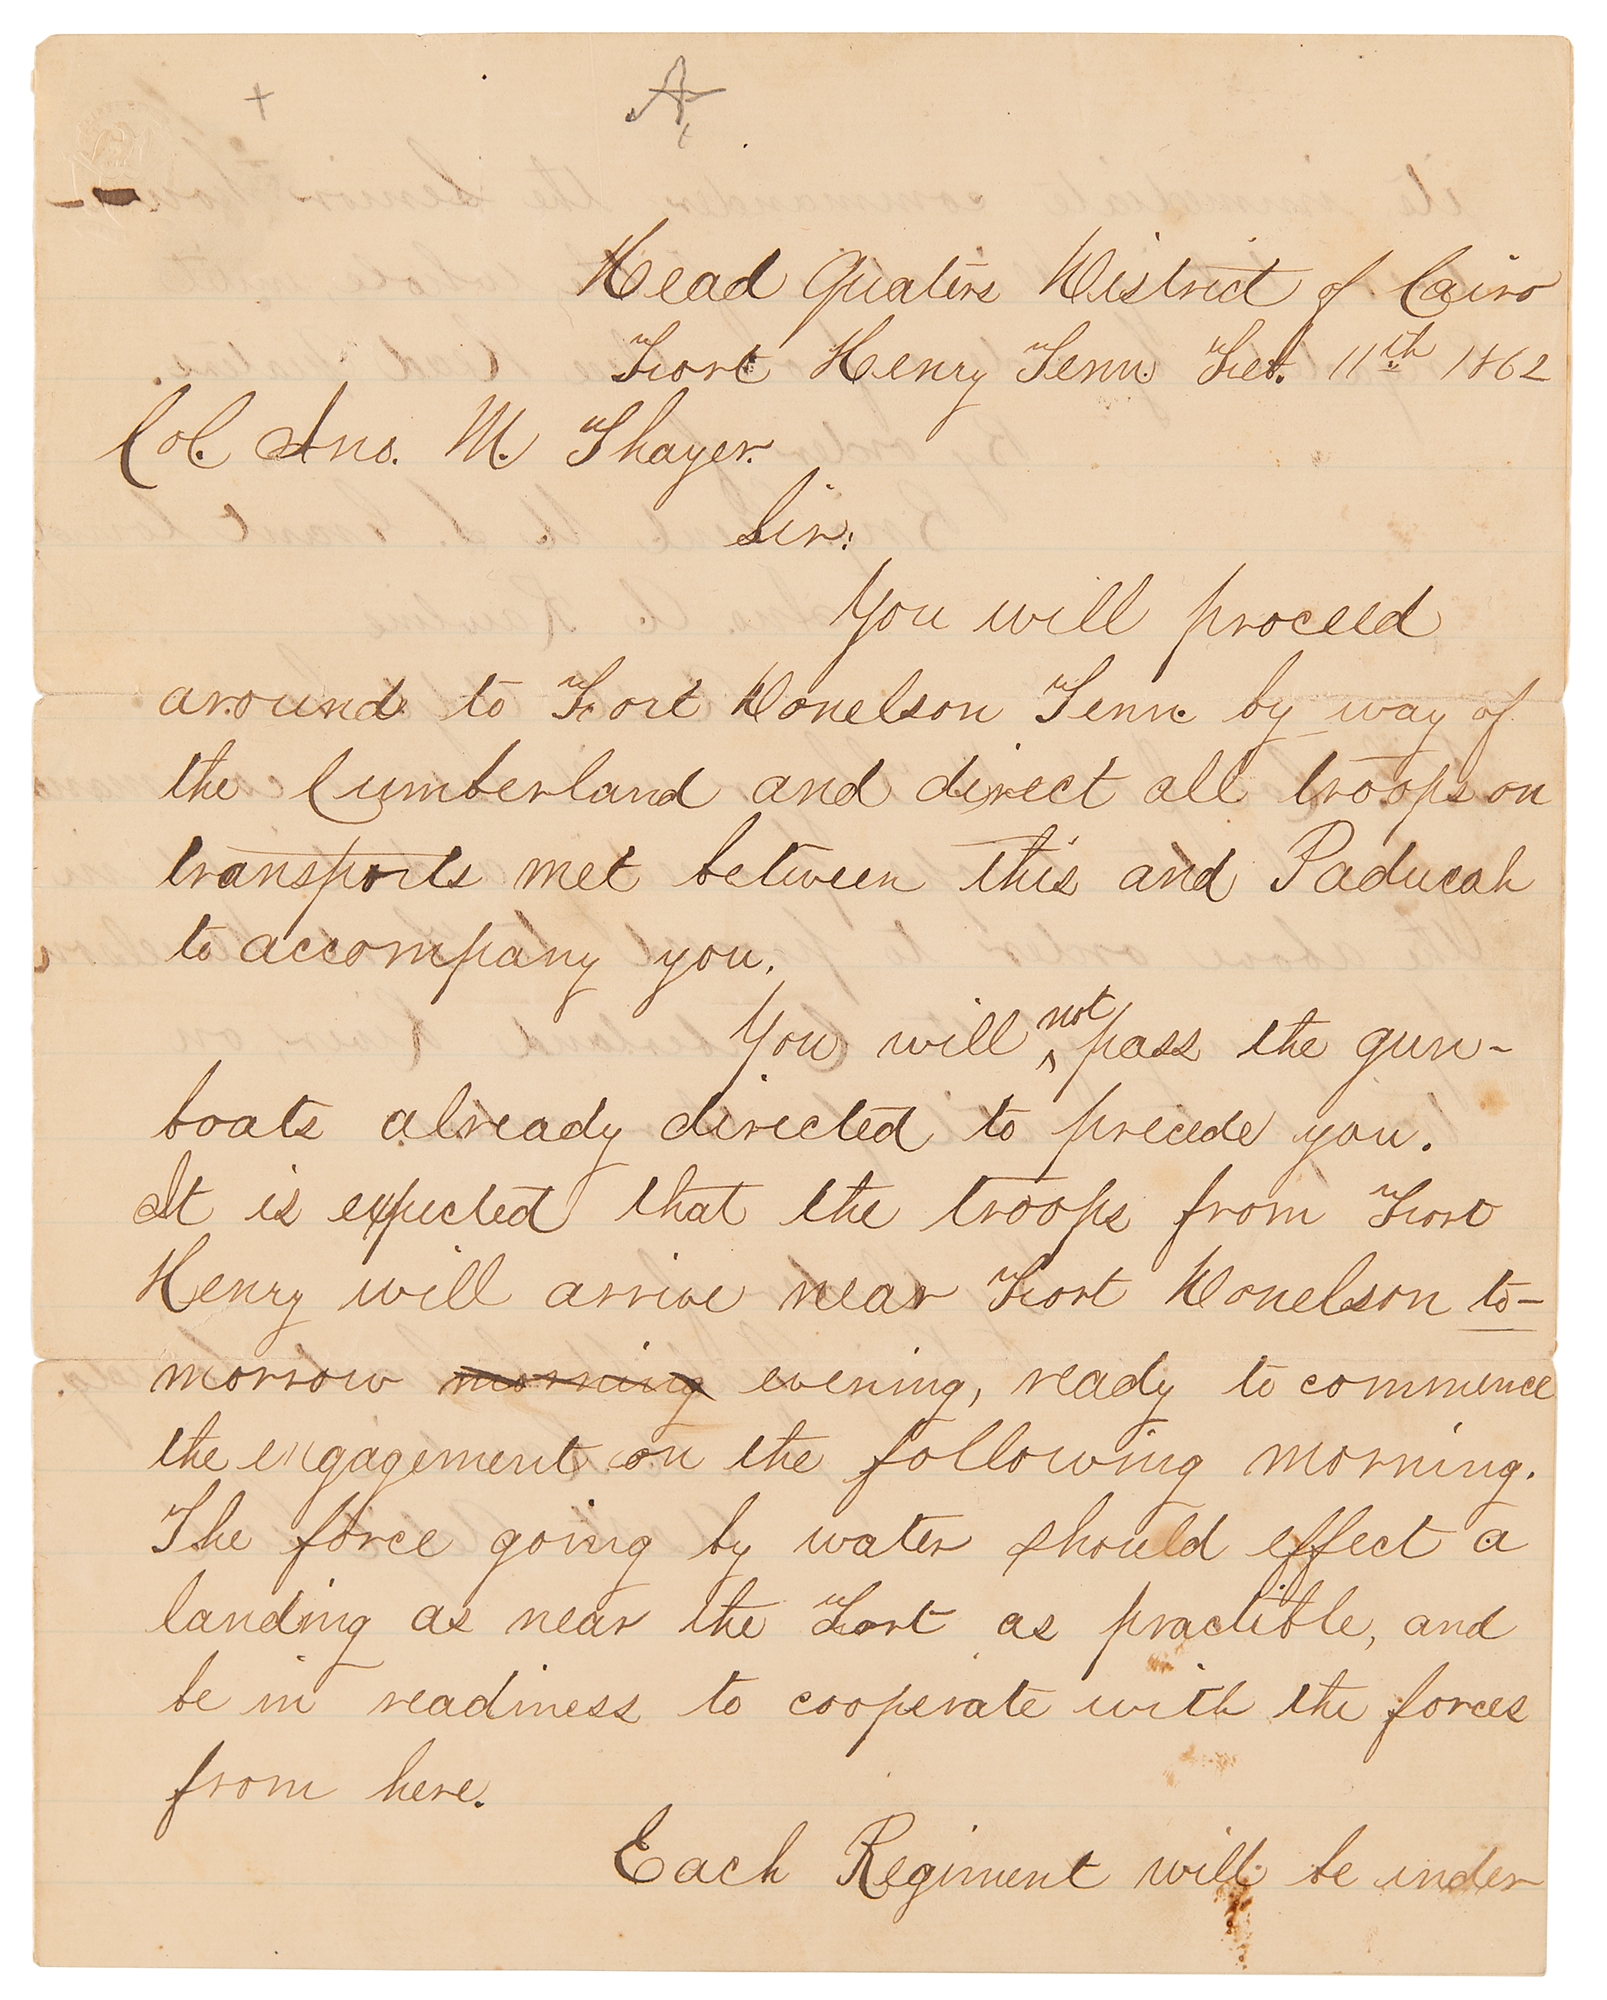 +
A
Head Quaters District of Cairo
Fort Henry Tenn. Feb. 11th 1862
Col. Jno. M. Thayer.
Sir:
You will proceed
around to Fort Donelson Tenn. by way of
the Cumberland and direct all troops on
transports met between this and Paducah
to accompany you.
You will not pass the gun-
boats already directed to precede you.
It is expected that the troops from Fort
Henry will arrive near Fort Donelson to-
morrow morning evening, ready to commence
the engagement on the following morning.
The force going by water should effect a
landing as near the Fort as practible, and
be in readiness to cooperate with the forces
from here.
Each Regiment will be under